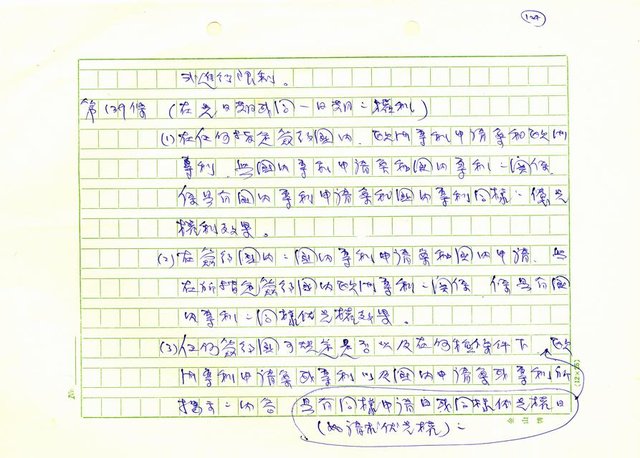 124
外進行限制。
第139條 (在先日期或同一日期之權利)
(1)在任何指定簽約國內，歐洲專利申請案和歐洲
專利，與國內專利申請案和國內專利之關係，
係具有國內專利申請案和國內專利同樣之優先
權利效果。
(2)在簽約國內之國內專利申請案和國內申請，與
在所指定簽約國內歐洲專利之關係 係具有國
內專利之同樣優先權效果。
(3)任何簽約國可規定是否以及在何種條件下，歐
洲專利申請案或專利以及國內申請案或專利所
揭示之內容 具有同樣申請日或同樣優先權日
(如請求優先權)之
(12×25)